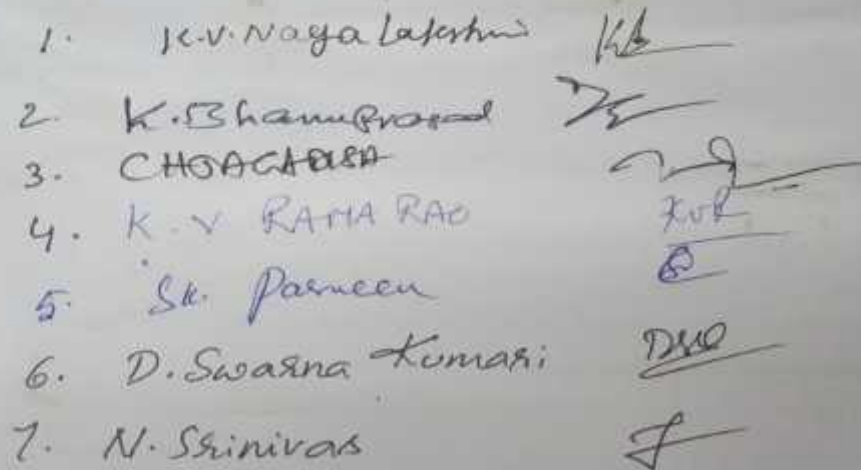 1. K.V. Naga Lakshmi
2. K. Bhanuprasad
3.
4. K. V RAMA RAO KVR
5. Sk. Parveen
6. D. Swarna Kumari
7. N. Srinivas